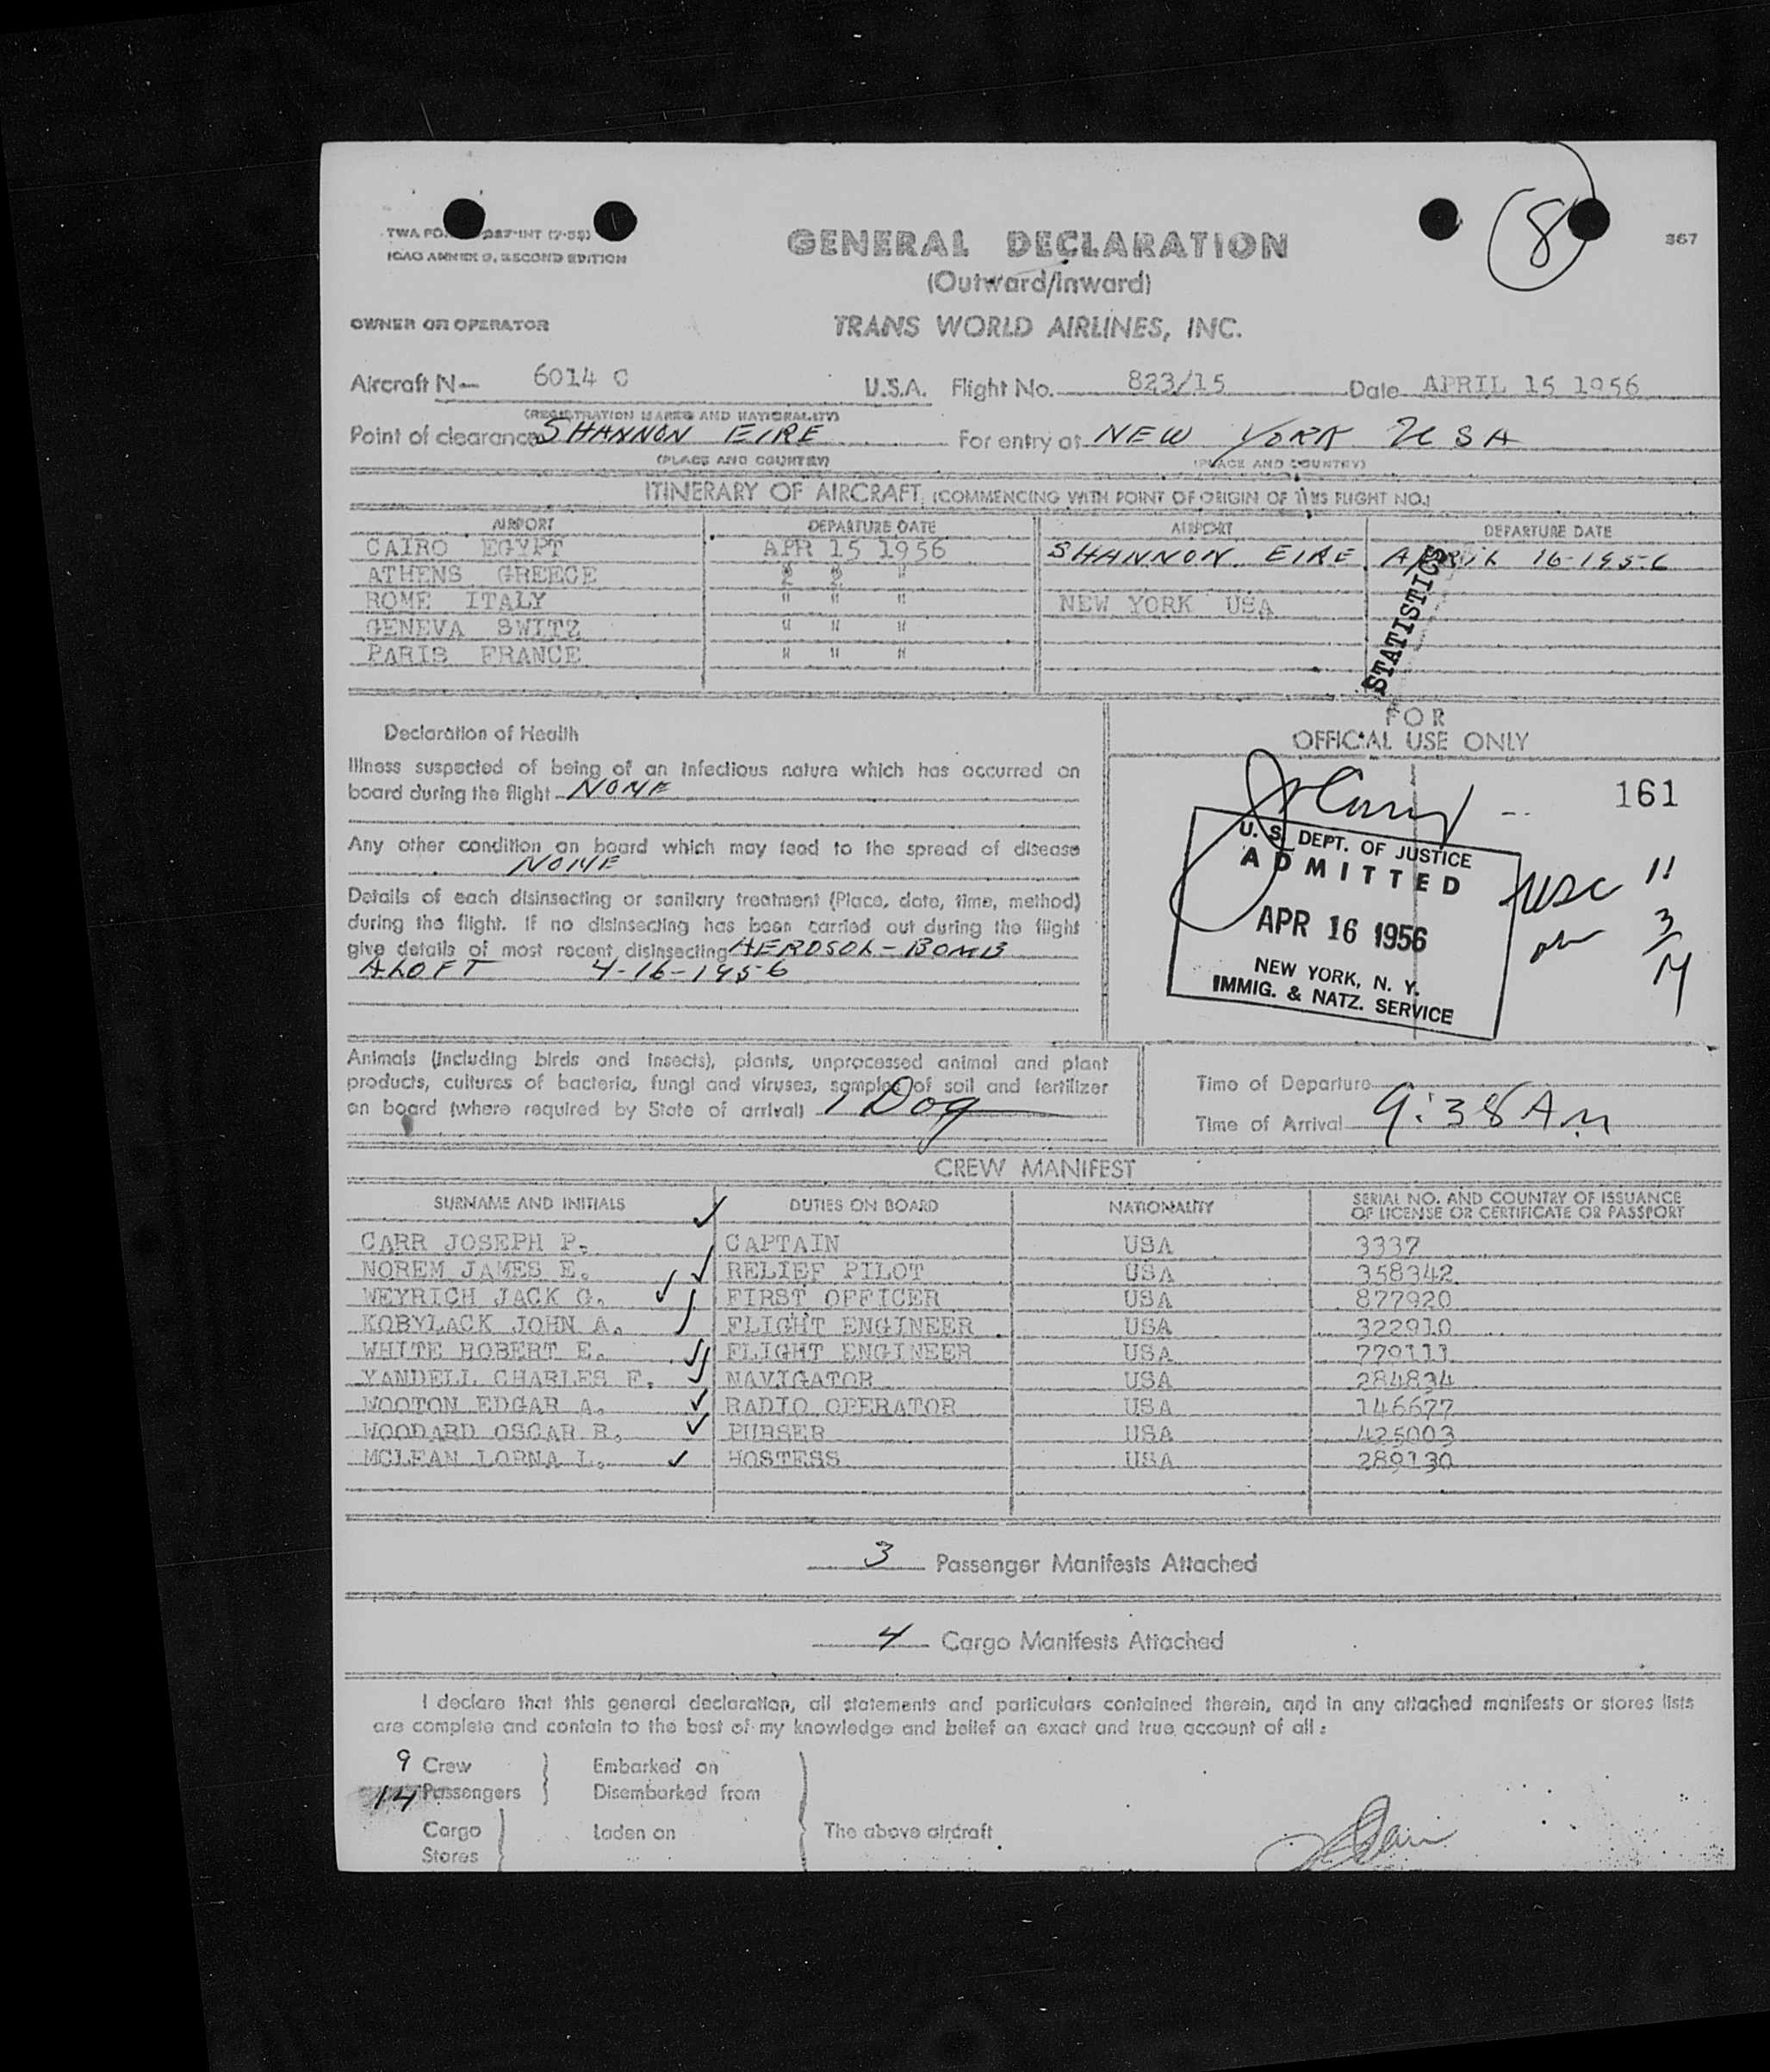 8
367
TWA FO 287-INT (7-55)
ICAO ANNEX 9, SECOND EDITION
GENERAL DECLARATION
(Outward/Inward)
OWNER OR OPERATOR
TRANS WORLD AIRLINES, INC.
Aircraft N— 6014 C U.S.A. Flight No. 823/15 Date APRIL 15 1956
(REGISTRATION MARKS AND NATIONALITY)
Point of clearance SHANNON EIRE For entry at NEW YORK USA
(PLACE AND COUNTRY) (PLACE AND COUNTRY)
ITINERARY OF AIRCRAFT (COMMENCING WITH POINT OF ORIGIN OF THIS FLIGHT NO.)
AIRPORT DEPARTURE DATE AIRPORT DEPARTURE DATE
CAIRO EGYPT APR 15 1956 SHANNON EIRE APRIL 16-1956
ATHENS GREECE " " "
ROME ITALY " " " NEW YORK USA
GENEVA SWITZ " " "
PARIS FRANCE " " "
STATISTICS
FOR
OFFICIAL USE ONLY
Declaration of Health
Illness suspected of being of an infectious nature which has occurred on
board during the flight NONE
Any other condition on board which may lead to the spread of disease
NONE
Details of each disinsecting or sanitary treatment (Place, date, time, method)
during the flight. If no disinsecting has been carried out during the flight
give details of most recent disinsecting AEROSOL-BOMB
ALOFT 4-16-1956
161
U. S. DEPT. OF JUSTICE
ADMITTED
APR 16 1956
NEW YORK, N. Y.
IMMIG. & NATZ. SERVICE
USC 11
3
14
Animals (including birds and insects), plants, unprocessed animal and plant
products, cultures of bacteria, fungi and viruses, samples of soil and fertilizer
on board (where required by State of arrival) 1 Dog
Time of Departure
Time of Arrival 9:38 AM
CREW MANIFEST
SURNAME AND INITIALS DUTIES ON BOARD NATIONALITY SERIAL NO. AND COUNTRY OF ISSUANCE
OF LICENSE OR CERTIFICATE OR PASSPORT
CARR JOSEPH P. CAPTAIN USA 3337
NOREM JAMES E. RELIEF PILOT USA 358342
WEYRICH JACK G. FIRST OFFICER USA 877920
KOBYLACK JOHN A. FLIGHT ENGINEER USA 322910
WHITE ROBERT E. FLIGHT ENGINEER USA 779111
YANDELL CHARLES F. NAVIGATOR USA 284834
WOOTON EDGAR A. RADIO OPERATOR USA 146677
WOODARD OSCAR R. PURSER USA 425003
MCLEAN LORNA L. HOSTESS USA 289130
3 Passenger Manifests Attached
4 Cargo Manifests Attached
I declare that this general declaration, all statements and particulars contained therein, and in any attached manifests or stores lists
are complete and contain to the best of my knowledge and belief an exact and true account of all:
9 Crew Embarked on
14 Passengers Disembarked from
Cargo Laden on The above aircraft
Stores